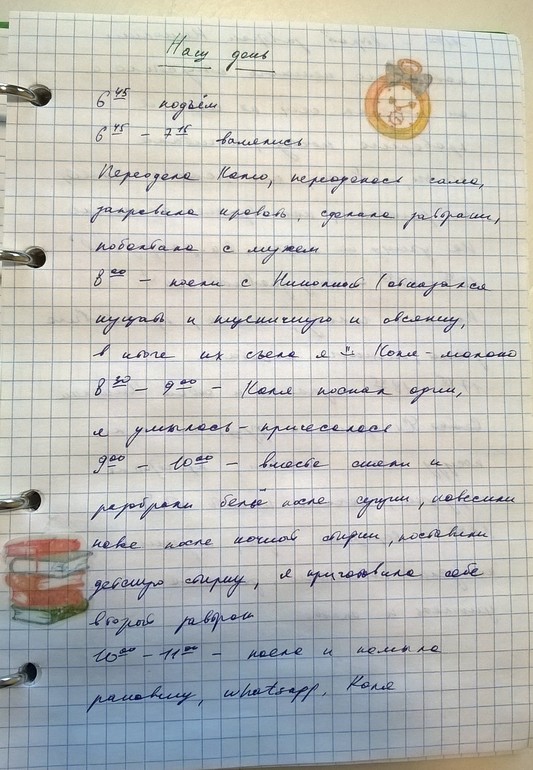 Наш день
6 45 подъём
6 45 – 7 15 валялись
Переодела Колю, переоделась сама,
заправила кровать, сделала завтраки,
поболтала с мужем
8 00 – поели с Николкой (отказался
кушать и пшеничную и овсянку,
в итоге их съела я Коля – молоко
8 30 – 9 00 – Коля поспал один,
я умылась – причесалась
9 00 – 10 00 – вместе сняли и
разобрали бельё после сушки, повесили
новое после ночной стирки, поставили
детскую стирку, я приготовила себе
второй завтрак
10 00 – 11 00 – поела и помыла
раковину, whatsapp, Коля